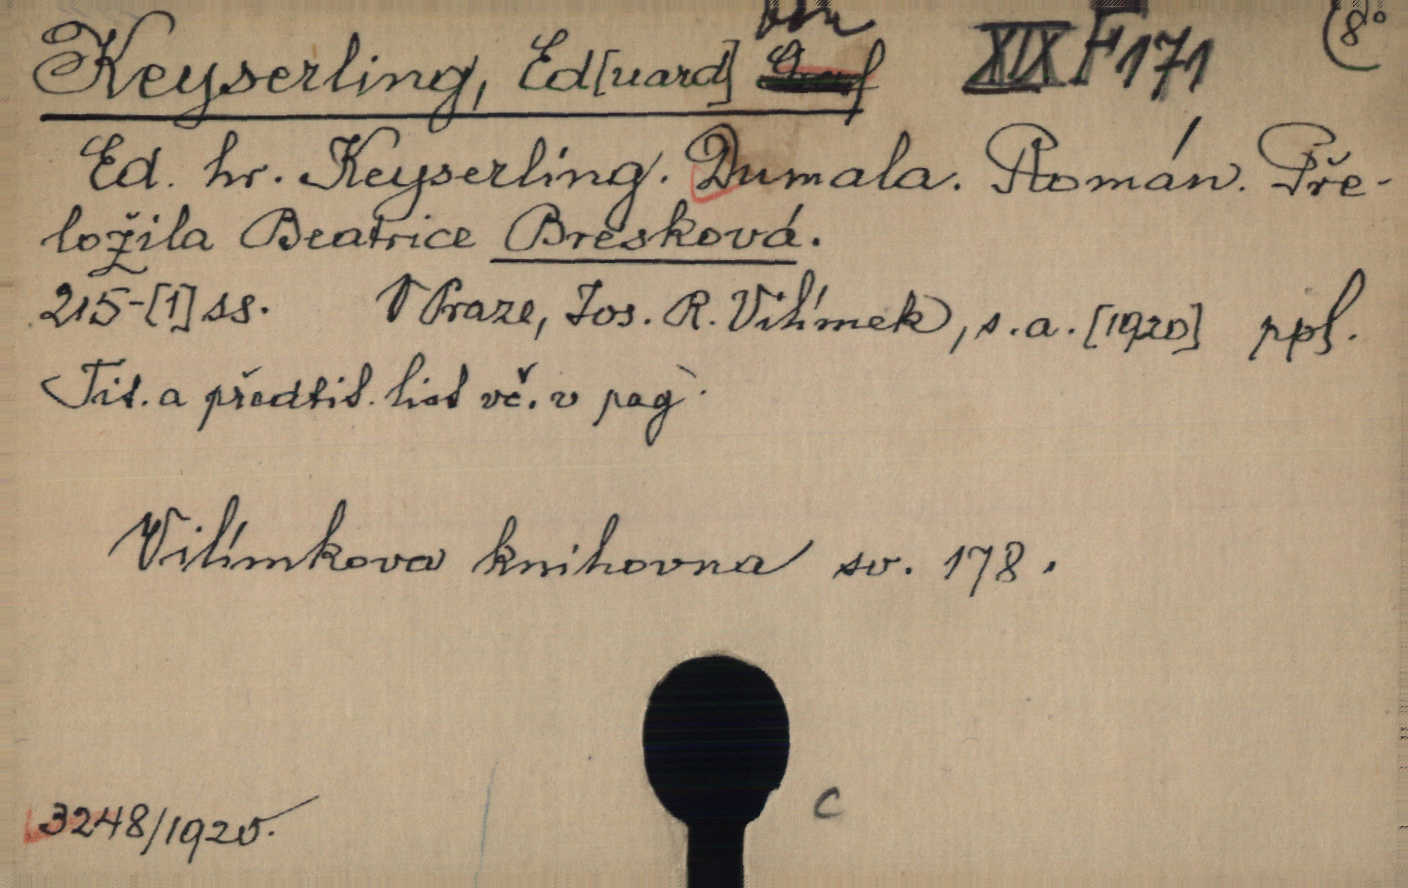 von
Keyserling, Ed[uard] Graf XIX F 171 8°
Ed. hr. Keyserling. Dumala. Román. Pře-
ložila Beatrice Bresková.
215-[1] ss. V Praze, Jos. R. Vilímek, s. a. [1920] ppl.
Tit. a předtit. list vč. v pag.
Vilímkova knihovna sv. 178.
c
3248/1920.